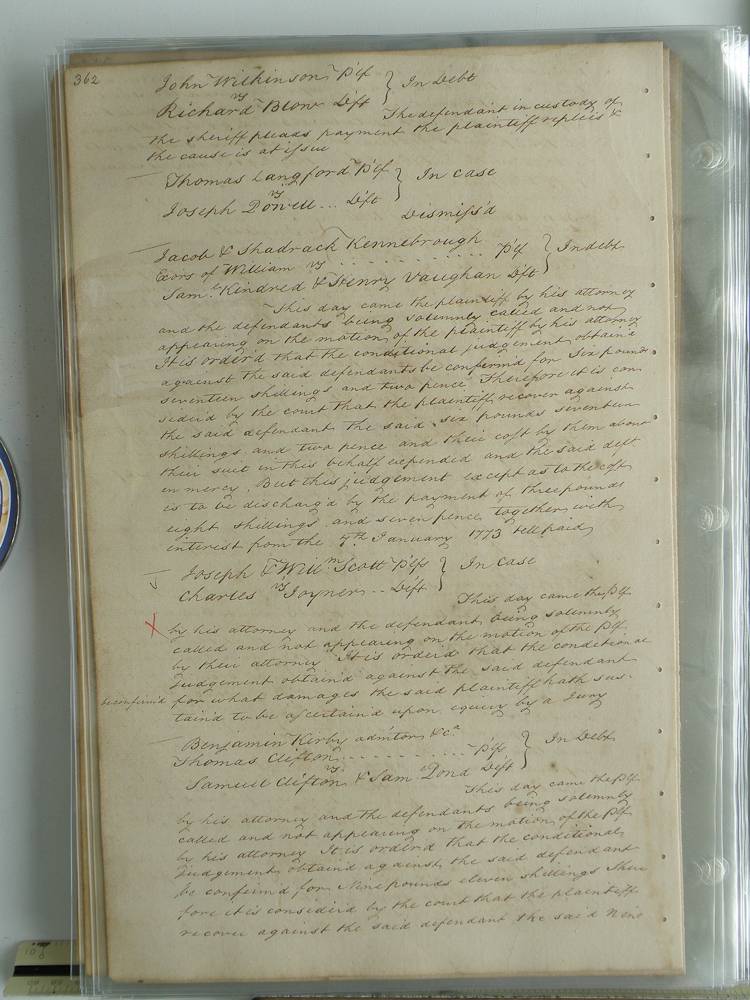 362
John Wilkinson Plf } In Debt
vs
Richard Blow Deft The defendant in custody of
the sheriff pleads payment the plaintiff replies &
the cause is at issue
Thomas Langford Plf } In case
vs
Joseph Powell ... Deft
Dismiss'd
Jacob & Shadrack Kennebrough
Exors of William . . . . . . . . . . Plf } In debt
vs
Sam.l Kindred & Henry Vaughan Deft
This day came the plaintiff by his attorney
and the defendants being solemnly called and not
appearing on the motion of the plaintiff by his attorney
It is order'd that the conditional judgement obtain'd
against the said defendants be confirm'd for Six pounds
seventeen shillings and two pence Therefore it is con
sider'd by the court that the plaintiff recover against
the said defendant the said six pounds seventeen
shillings and two pence and their cost by them about
their suit in this behalf expended and the said deft
in mercy. But this judgement except as to the cost
is to be discharg'd by the payment of three pounds
eight shillings and seven pence together with
interest from the 7th January 1773 till paid
Joseph & Will.m Scott Plfs } In Case
vs
Charles Joyner .. Deft
This day came the Plf
X by his attorney and the defendant being solemnly
called and not appearing on the motion of the Plf
by their attorney It is order'd that the conditional
Judgement obtain'd against the said defendant
be confirm'd for what damages the said plaintiff hath sus-
tain'd to be ascertain'd upon equiry by a Jury
Benjamin Kirby admitors &c.a
Thomas Clifton . . . . . . . . . Plfs } In Debt
vs
Samuel Clifton & Sam. Pond Deft
This day came the Plf
by his attorney and the defendants being solemnly
called and not appearing on the motion of the Plf
by his attorney It is order'd that the conditional
Judgement obtain'd against the said defendant
be confirm'd for Nine pounds eleven shillings There
fore it is consider'd by the court that the plaintiff
recover against the said defendant the said Nine